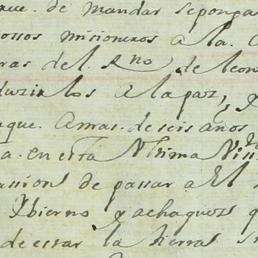 que. de mandar se ponga
ossos misioneros a la. C
ras del. Rno, de leon
duzir los a la paz, y
que. a mas. de seis años
a. en esta Vltima Viss
assion de passar a El
Ybierno y achaquos q
de estar la tierra